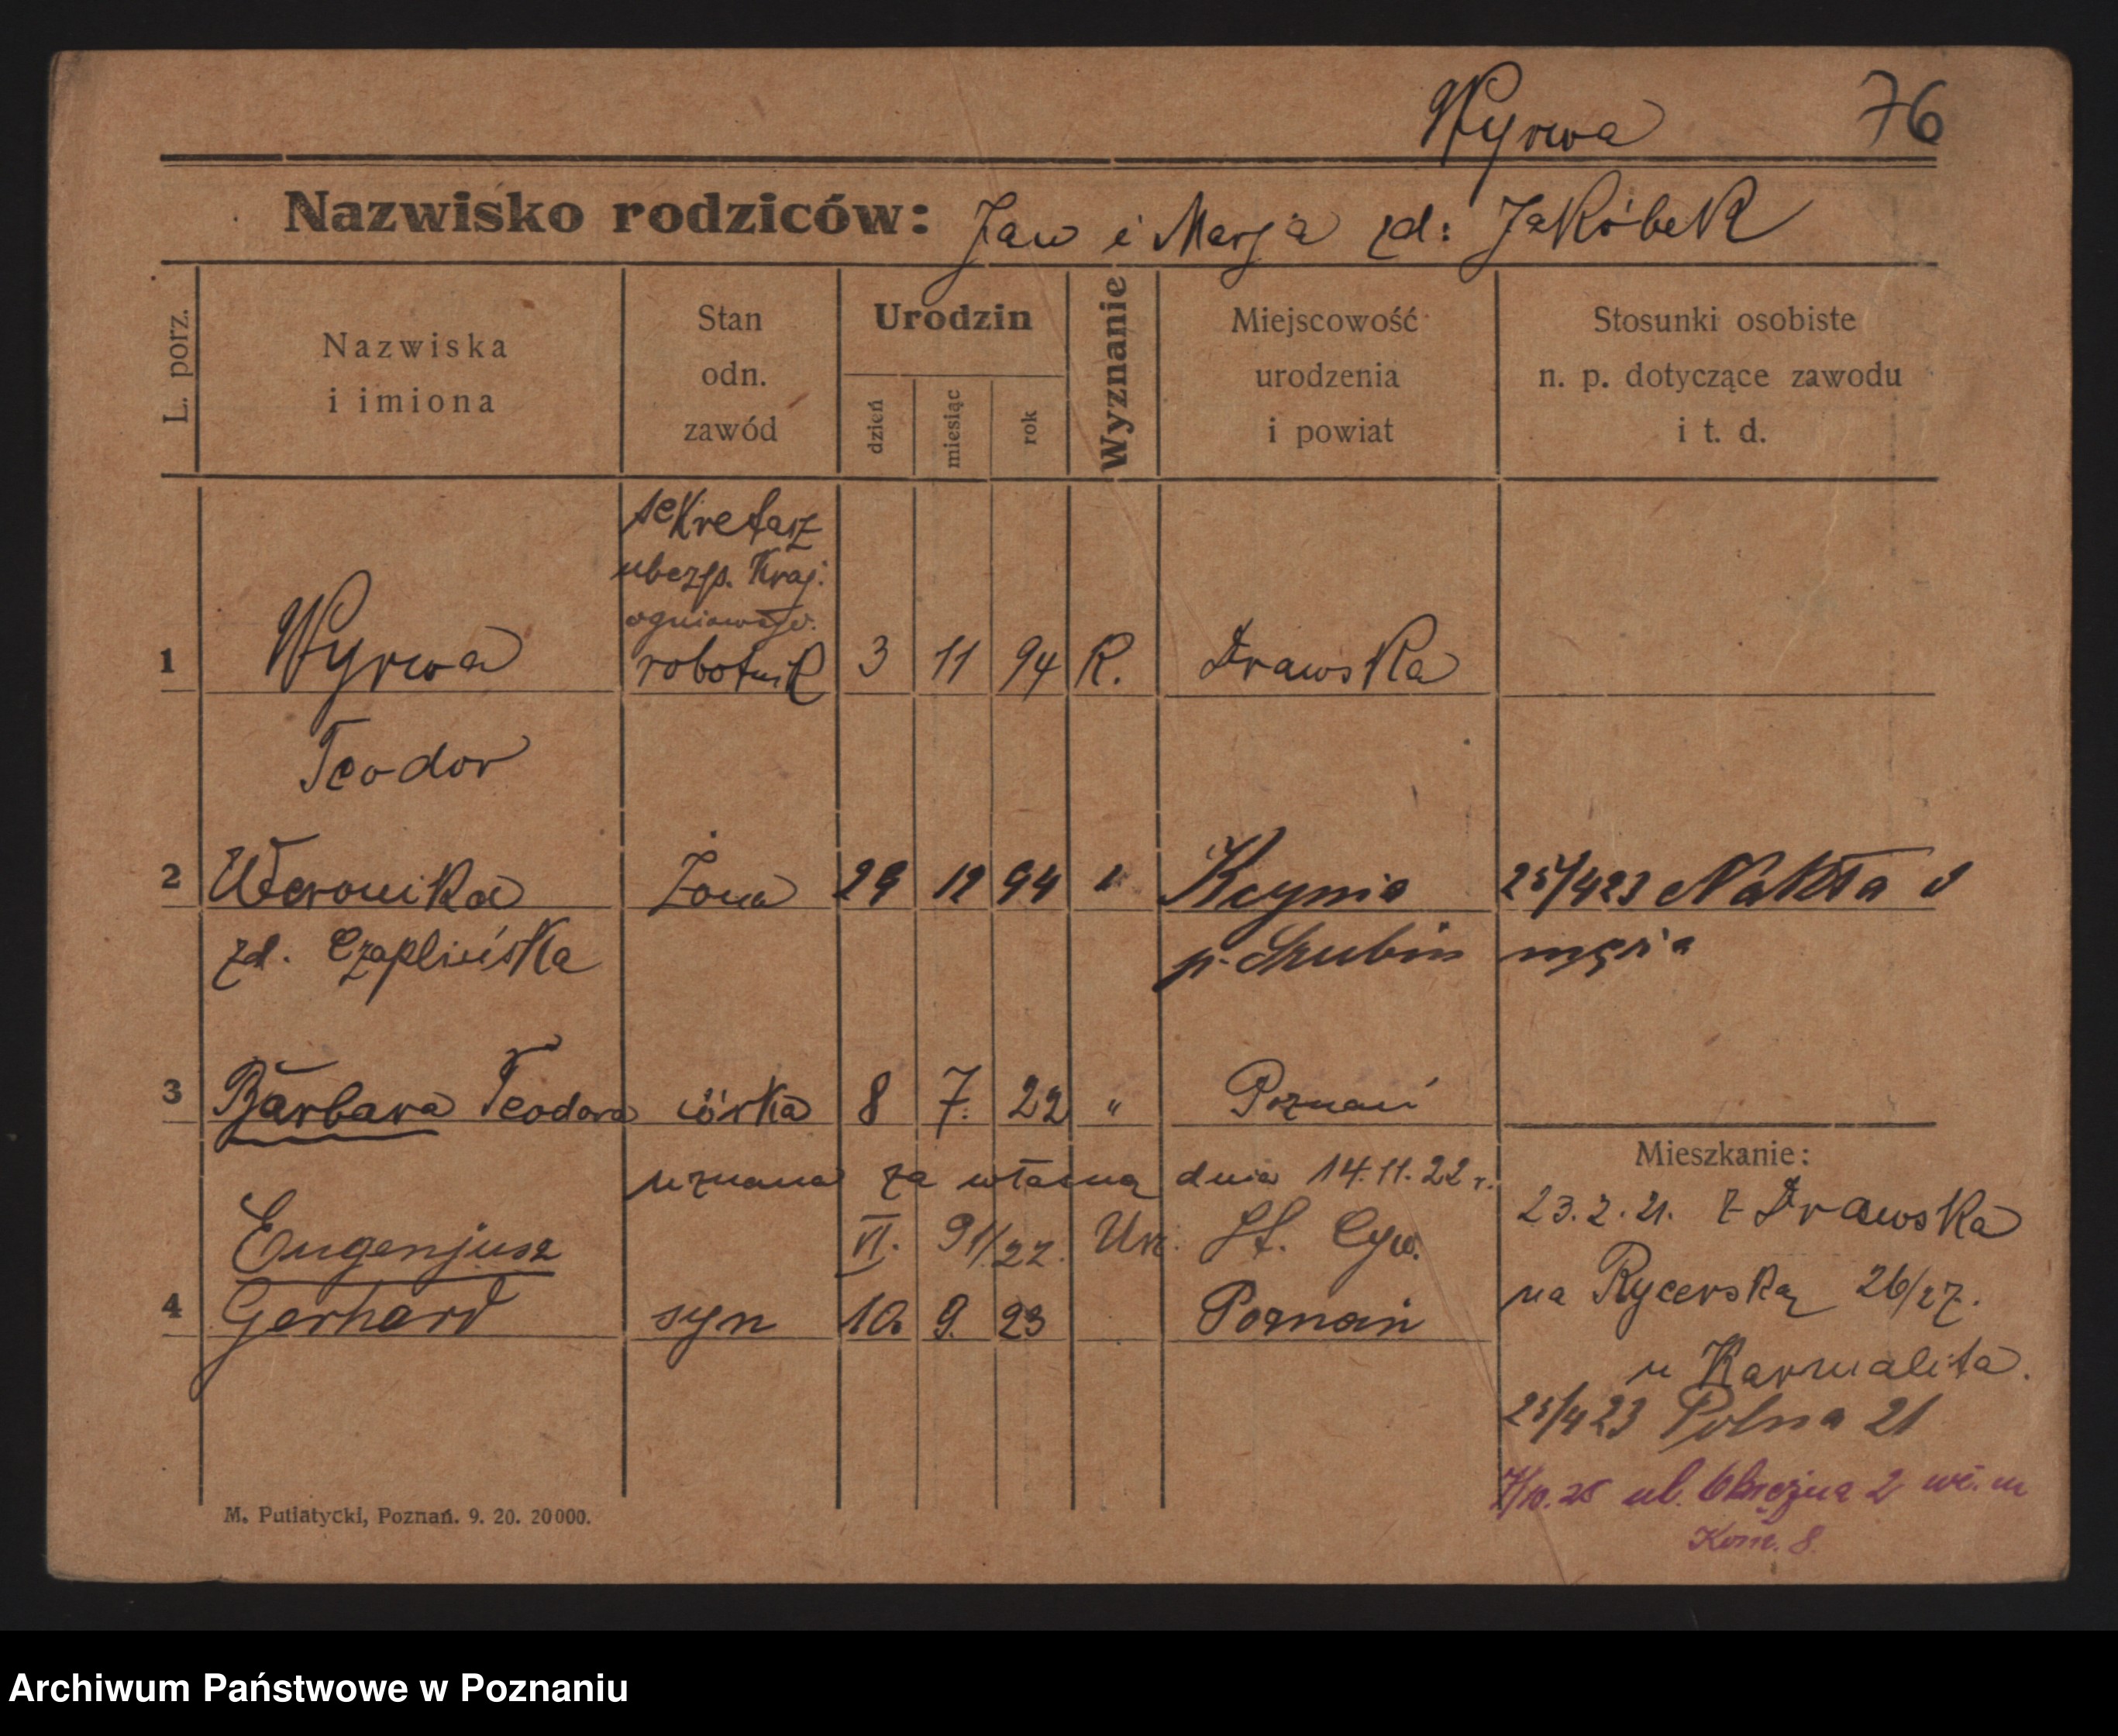 Wyrwa 76
Nazwisko rodziców: Jan i Marja zd: Jakóbek
L. porz.
Nazwiska
i imiona
Stan
odn.
zawód
Urodzin
dzień
miesiąc
rok
Wyznanie
Miejscowość
urodzenia
i powiat
Stosunki osobiste
n. p. dotyczące zawodu
i t. d.
sekretarz
ubezp. Kraj.
ogniowego.
1 Wyrwa robotnik 3 11 94 R. Drawska
Teodor
2 Weronika Żona 29 12 94 " Kcynia 25/4 23 Nakła d
zd. Czaplińska p. Szubin męża
3 Barbara Teodora córka 8 7. 22 " Poznań
uznana za własną dnia 14.11.22 r.
Eugenjusz VI. 91/22. Urz. St. Cyw.
4 Gerhard syn 10. 9. 23 Poznań
Mieszkanie:
23.2.21. z Drawska
na Rycerską 26/27.
u Karmalita.
25/4 23 Polna 21
7/10.25 ul. 2
Kom. 8.
M. Putiatycki, Poznań. 9. 20. 20000.
Archiwum Państwowe w Poznaniu